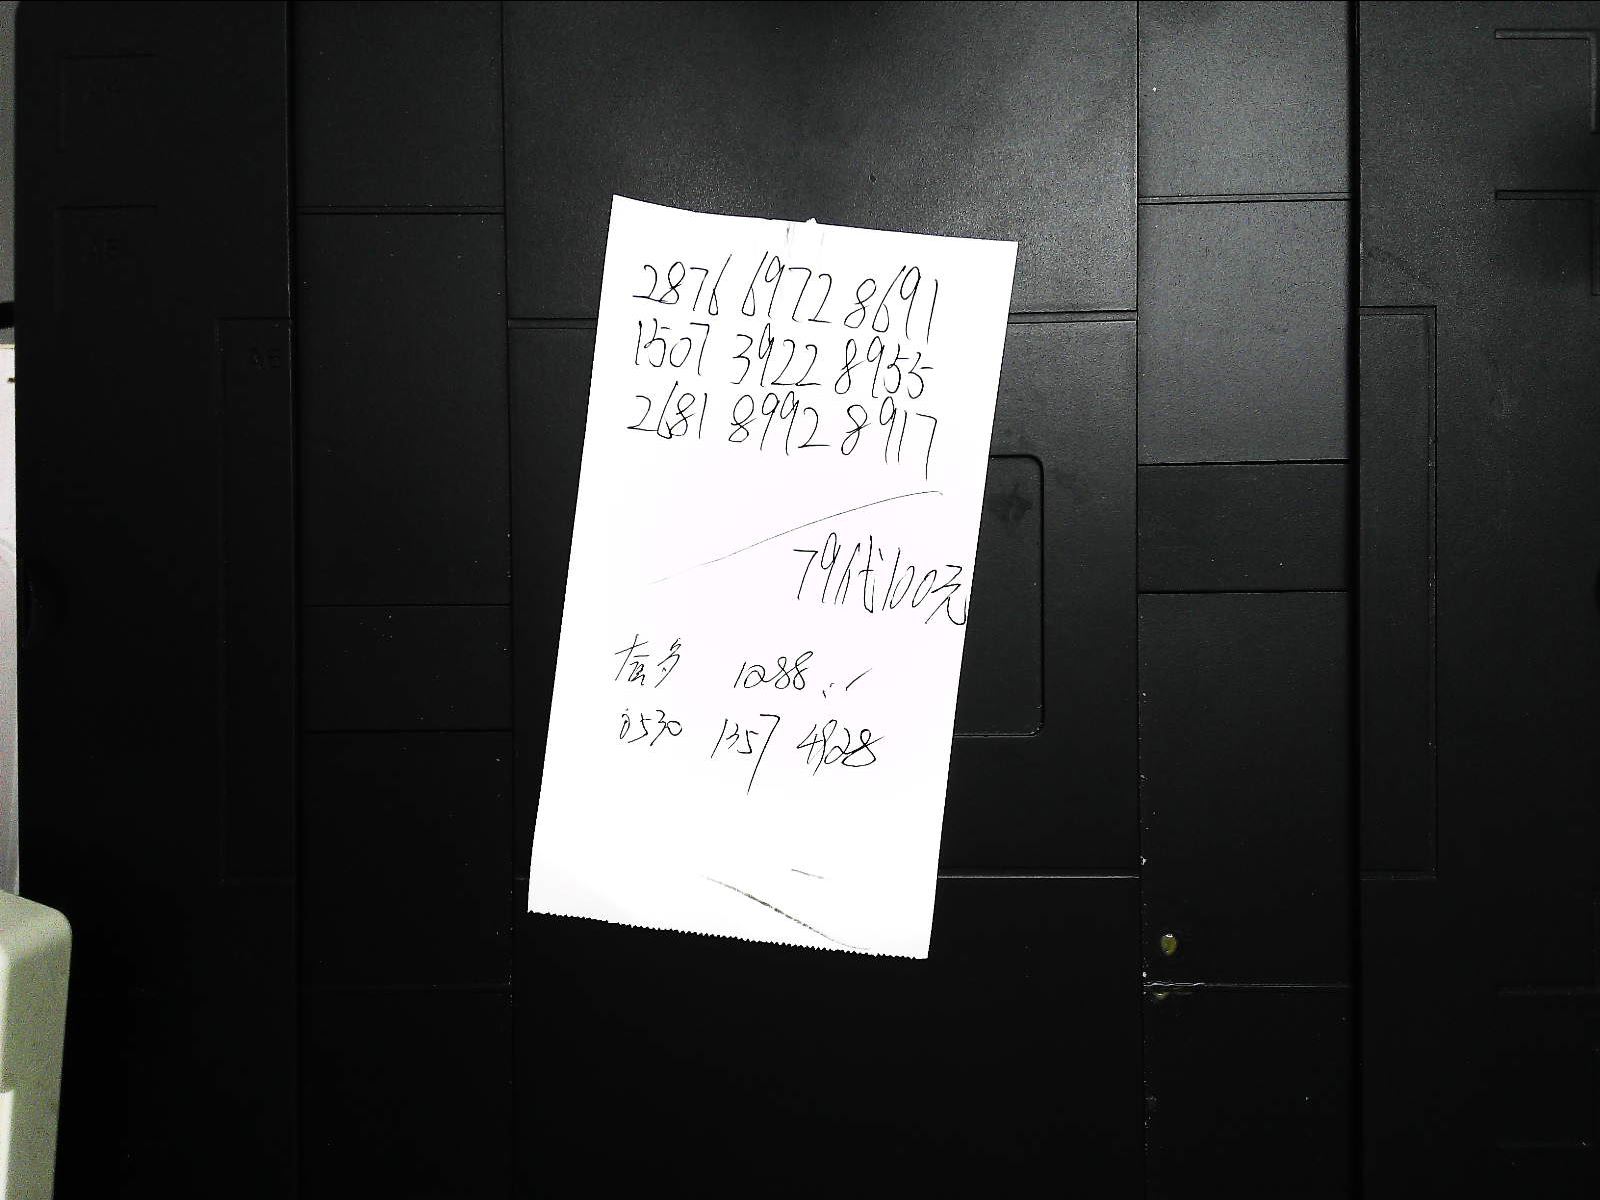 2876 6972 8691
1507 3922 8955
2681 8992 8917
79代100元
1288
530 1357 4928
A5